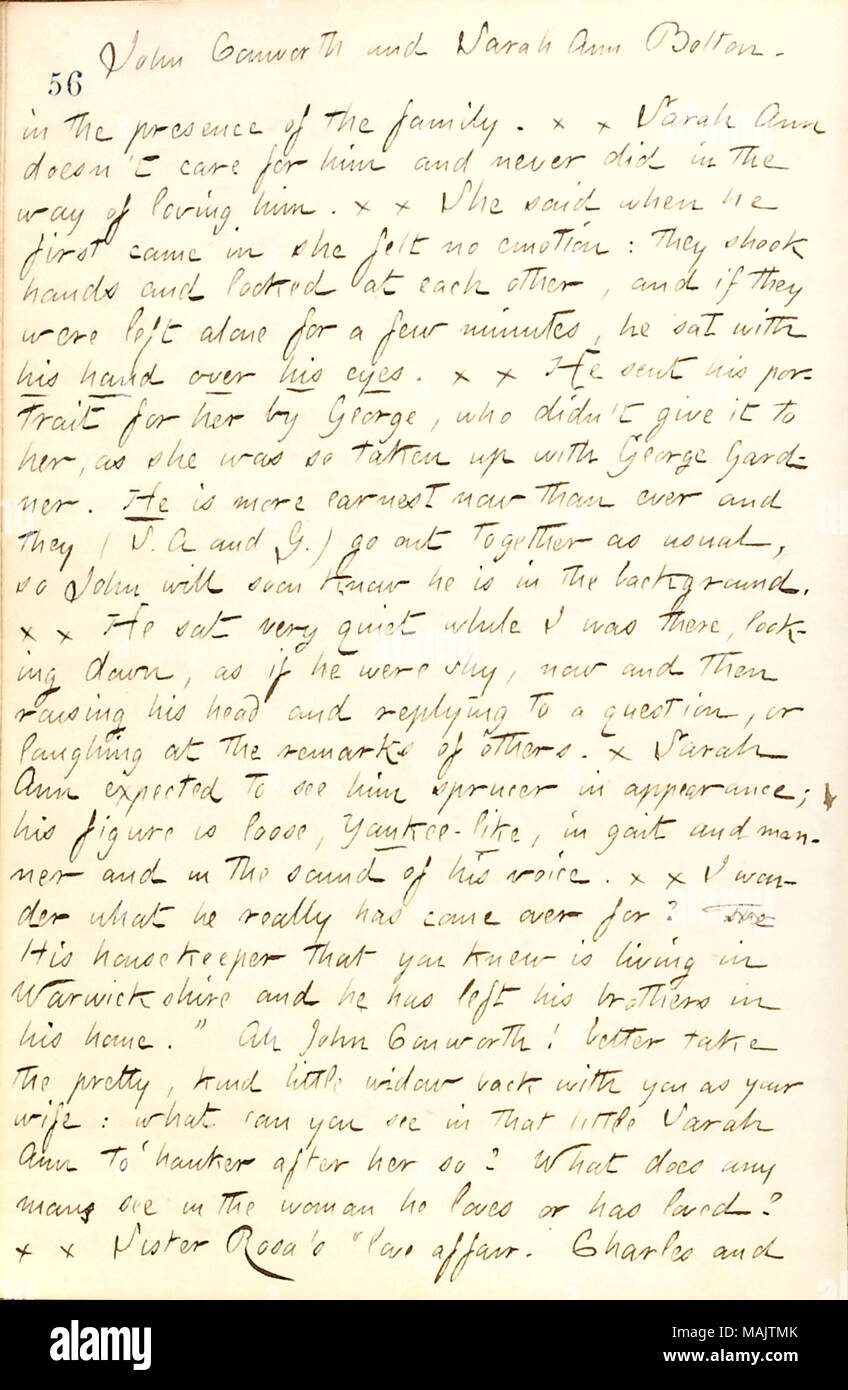 John Conworth and Sarah Ann Bolton.
56
in the presence of the family. x x Sarah Ann
doesn't care for him and never did in the
way of loving him. x x She said when he
first came in she felt no emotion: they shook
hands and looked at each other, and if they
were left alone for a few minutes, he sat with
his hand over his eyes. x x He sent his por-
trait for her by George, who didn't give it to
her, as she was so taken up with George Gard-
ner. He is more earnest now than ever and
they (S. A and G.) go out together as usual,
so John will soon know he is in the background.
x x He sat very quiet while I was there, look-
ing down, as if he were shy, now and then
raising his head and replying to a question, or
laughing at the remarks of others. x Sarah
Ann expected to see him sprucer in appearance;
his figure is loose, Yankee-like, in gait and man-
ner and in the sound of his voice. x x I won-
der what he really has come over for? The
His housekeeper that you knew is living in
Warwickshire and he has left his brothers in
his home." Ah John Conworth! better take
the pretty, kind little widow back with you as your
wife: what can you see in that little Sarah
Ann to hanker after her so? What does any
mans see in the woman he loves or has loved?
x x Sister Rosa's "love affair. Charles and
alamy
Image ID: MAJTMK
www.alamy.com